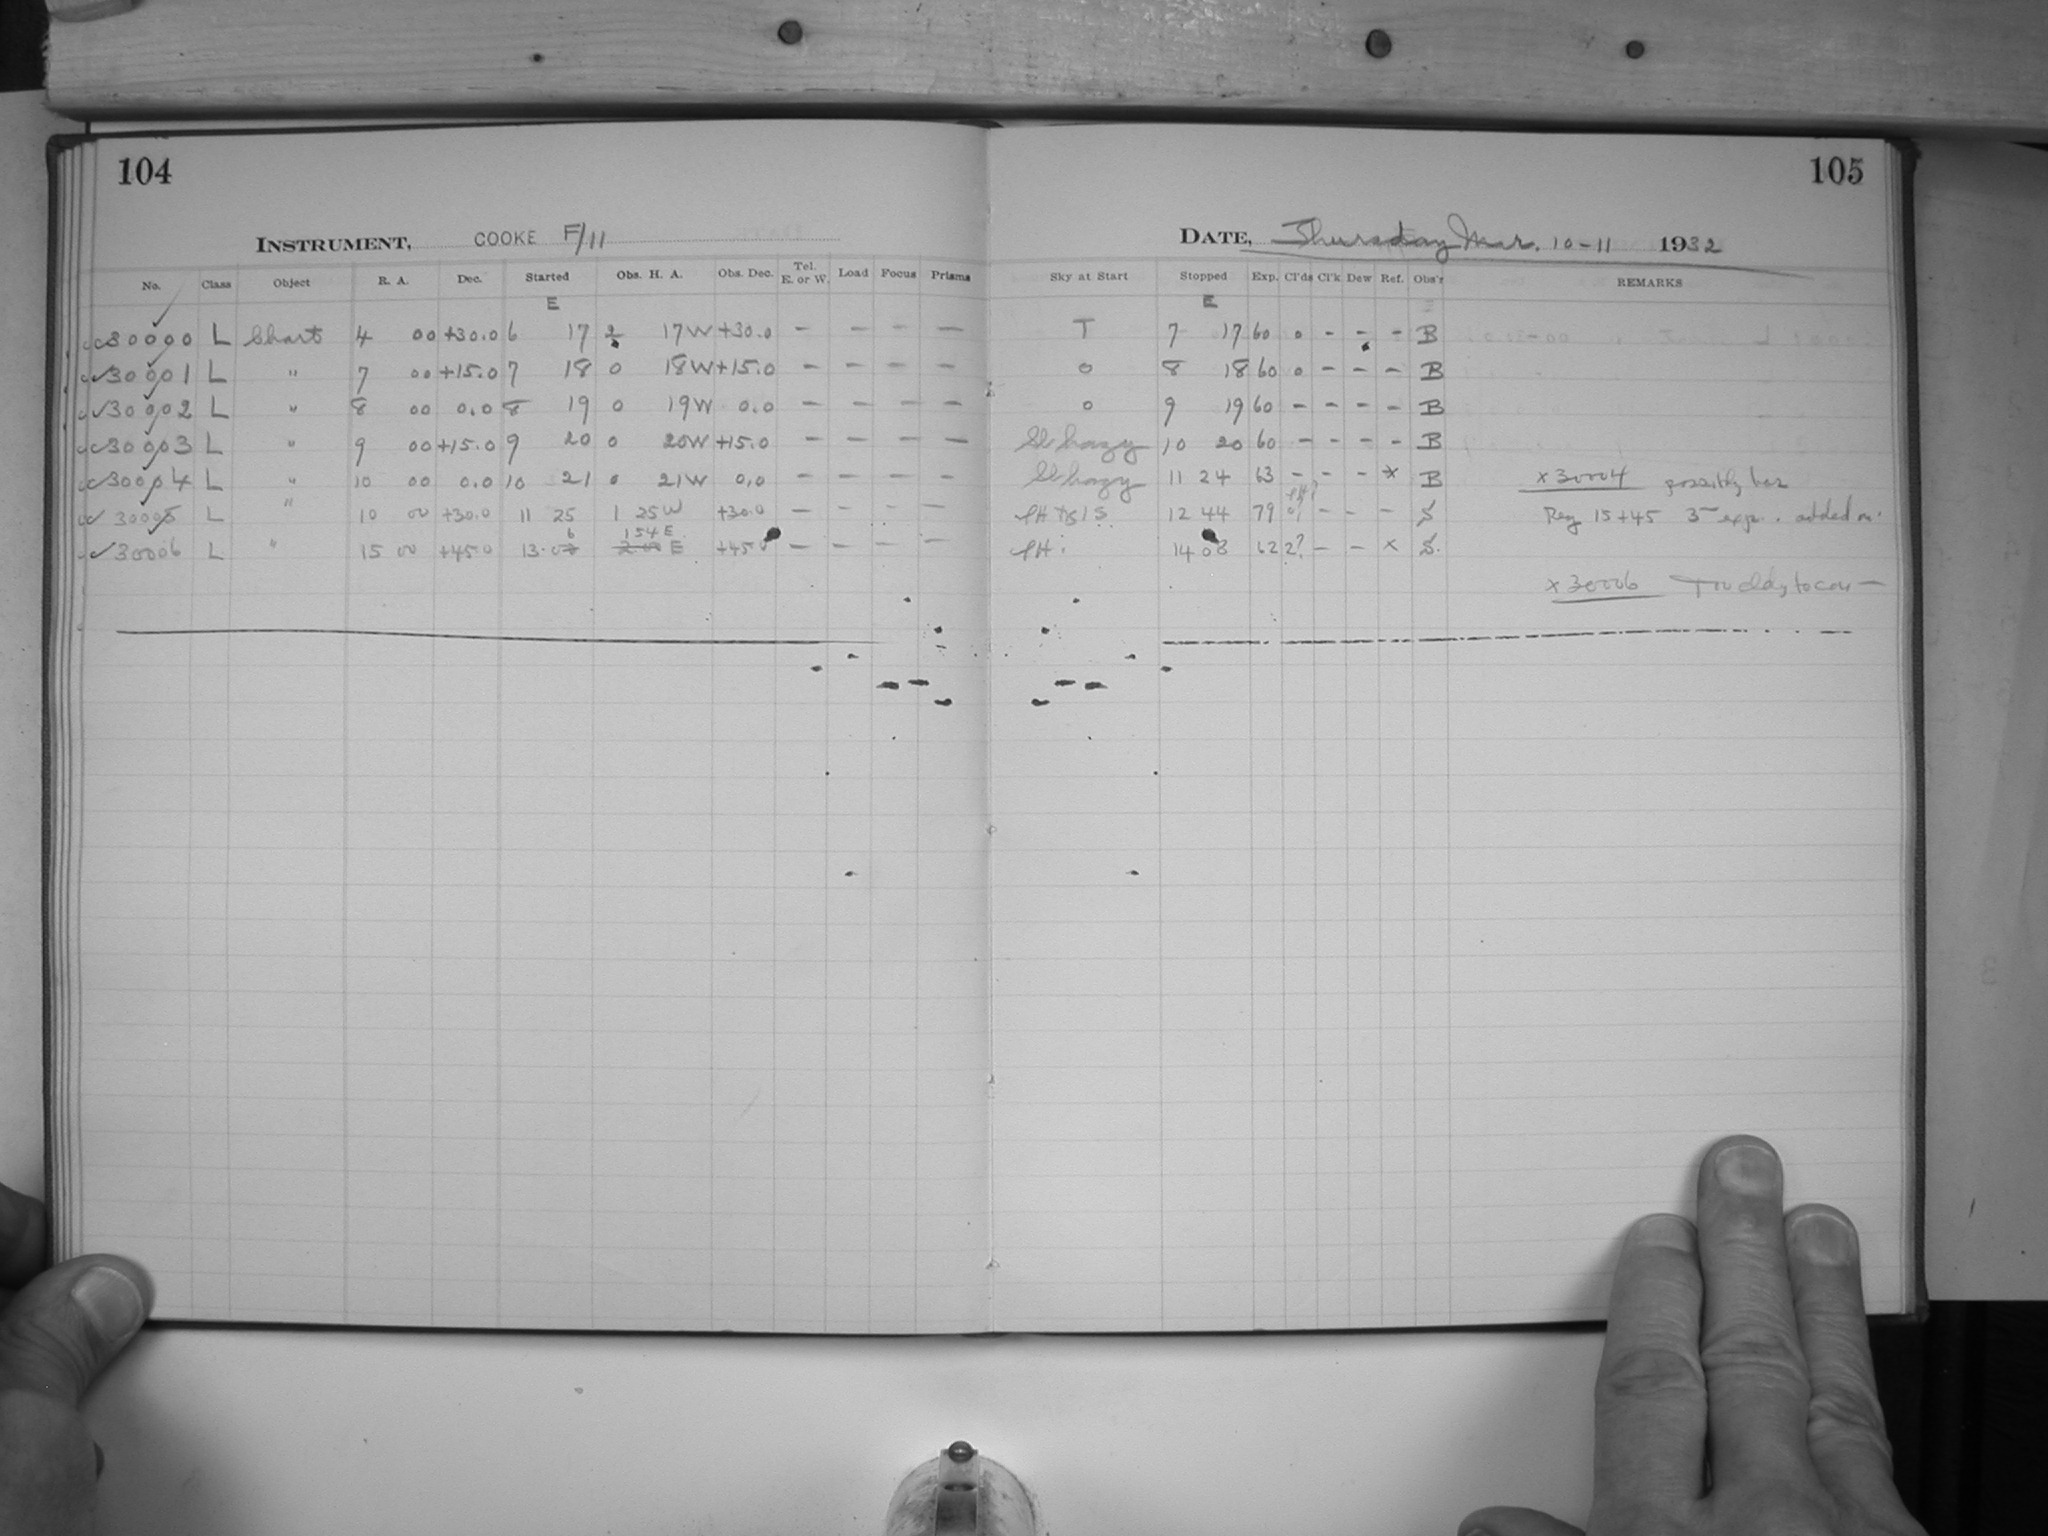 104
105
INSTRUMENT, COOKE F/11
DATE, Thursday Mar. 10-11 1932
No. Class Object R. A. Dec. Started Obs. H. A. Obs. Dec. Tel. E. or W. Load Focus Prisms Sky at Start Stopped Exp. Cl'ds Cl'k Dew Ref. Obs'r REMARKS
E E
30000 L Chart 4 00 +30.0 6 17 2 17W +30.0 - - - - T 7 17 60 0 - - - B
30001 L " 7 00 +15.0 7 18 0 18W +15.0 - - - - 0 8 18 60 0 - - - B
30002 L " 8 00 0.0 8 19 0 19W 0.0 - - - - 0 9 19 60 - - - - B
30003 L " 9 00 +15.0 9 20 0 20W +15.0 - - - - Sl hazy 10 20 60 - - - - B
30004 L " 10 00 0.0 10 21 0 21W 0.0 - - - - Sl hazy 11 24 63 - - - x B x30004 possibly has
30005 L " 10 00 +30.0 11 25 1 25W +30.0 - - - - 12 44 79 - - - S Reg 15+45 exp. added on
30006 L " 15 00 +45.0 13 06 1 54 E +45.0 - - - - 14 08 62 2? - - x S.
x30006